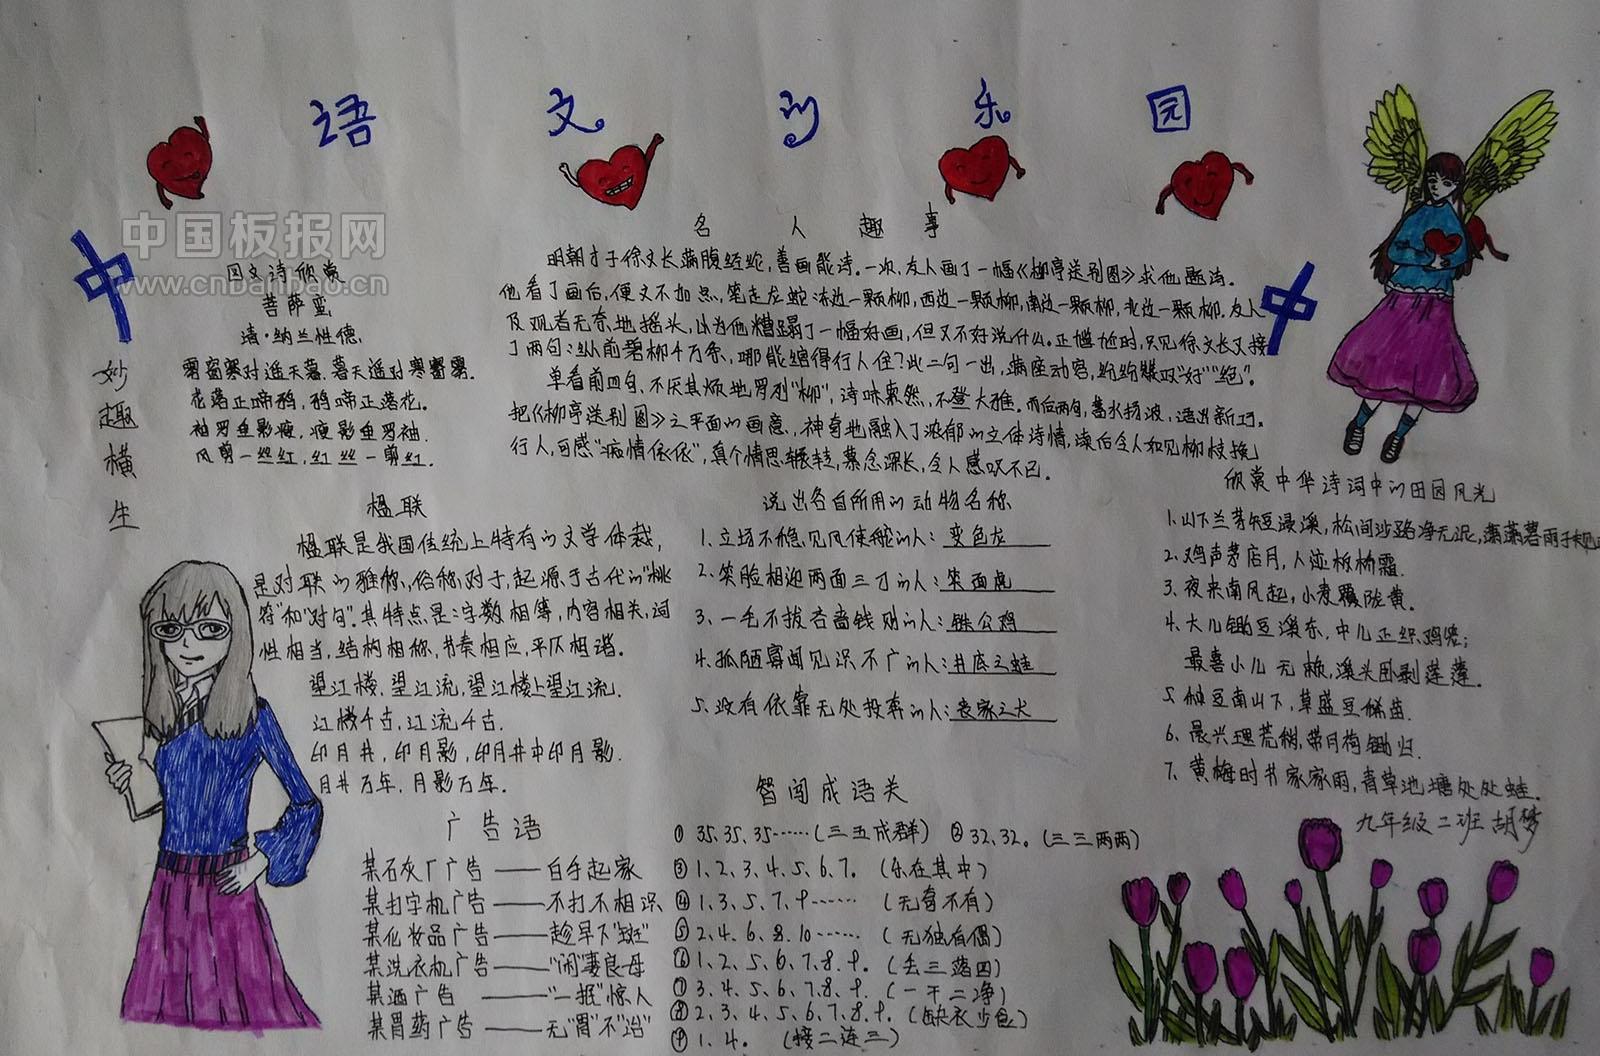 语文的乐园
中国板报网
www.cnbanbao.cn
中
妙趣横生
回文诗欣赏
菩萨蛮
清·纳兰性德
雾窗寒对遥天暮,暮天遥对寒窗雾.
花落正啼鸦,鸦啼正落花。
袖罗垂影瘦,瘦影垂罗袖.
风剪一丝红,红丝一剪风.
名人趣事
明朝才子徐文长满腹经纶,善画能诗。一次,友人画了一幅《柳亭送别图》求他题诗.
他看了画后,便文不加点,笔走龙蛇:东边一颗柳,西边一颗柳,南边一颗柳,北边一颗柳.友人
及观者无奈地摇头,以为他糟蹋了一幅好画,但又不好说什么。正尴尬时,只见徐文长又接
了两句:纵前碧柳千万条,哪能绾得行人住?此二句一出,满座动容,纷纷赞叹"好""绝"。
单看前四句,不厌其烦地罗列"柳",诗味索然,不登大雅.而后两句,蓄水扬波,语出新巧.
把《柳亭送别图》之平面的画意,神奇地融入了浓郁的立体诗情,读后令人如见柳枝挽
行人,可感"痴情依依",真个情思辗转,慕念深长,令人感叹不已.
中
楹联
楹联是我国传统上特有的文学体裁,
是对联的雅称,俗称对子,起源于古代的"桃
符"和"对句".其特点是:字数相等,内容相关,词
性相当,结构相称,节奏相应,平仄相谐.
望江楼,望江流,望江楼上望江流.
江楼千古,江流千古.
印月井,印月影,印月井中印月影.
月井万年,月影万年.
说出各自所用的动物名称
1.立场不稳见风使舵的人:变色龙
2.笑脸相迎两面三刀的人:笑面虎
3.一毛不拔吝啬钱财的人:铁公鸡
4.孤陋寡闻见识不广的人:井底之蛙
5.没有依靠无处投奔的人:丧家之犬
欣赏中华诗词中的田园风光
1.山下兰芽短浸溪,松间沙路净无泥,潇潇暮雨子规
2.鸡声茅店月,人迹板桥霜.
3.夜来南风起,小麦覆陇黄.
4.大儿锄豆溪东,中儿正织鸡笼;
最喜小儿无赖,溪头卧剥莲蓬.
5.种豆南山下,草盛豆稀苗.
6.晨兴理荒秽,带月荷锄归.
7.黄梅时节家家雨,青草池塘处处蛙.
九年级二班 胡梦
广告语
某石灰厂广告——白手起家
某打字机广告——不打不相识
某化妆品广告——趁早下"斑"
某洗衣机广告——"闲"妻良母
某酒广告——"一抿"惊人
某胃药广告——无"胃"不"治"
智闯成语关
①35.35.35……(三五成群) ②32.32。(三三两两)
③1、2、3、4、5、6、7。(乐在其中)
④1、3、5、7、9……(无奇不有)
⑤2、4、6、8、10……(无独有偶)
⑥1、2、5、6、7、8、9。(丢三落四)
⑦3、4、5、6、7、8、9.(一干二净)
⑧2、3、4、5、6、7、8、9。(缺衣少食)
⑨1、4。(接二连三)